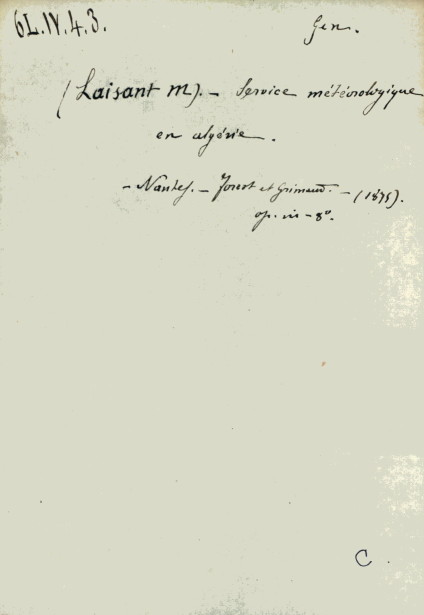 6L.IV.4.3.
Gen.
(Laisant M). - Service météorologique
en algérie.
- Nantes. - Forest et Grimaud. - (1875).
op. in-8°.
C.